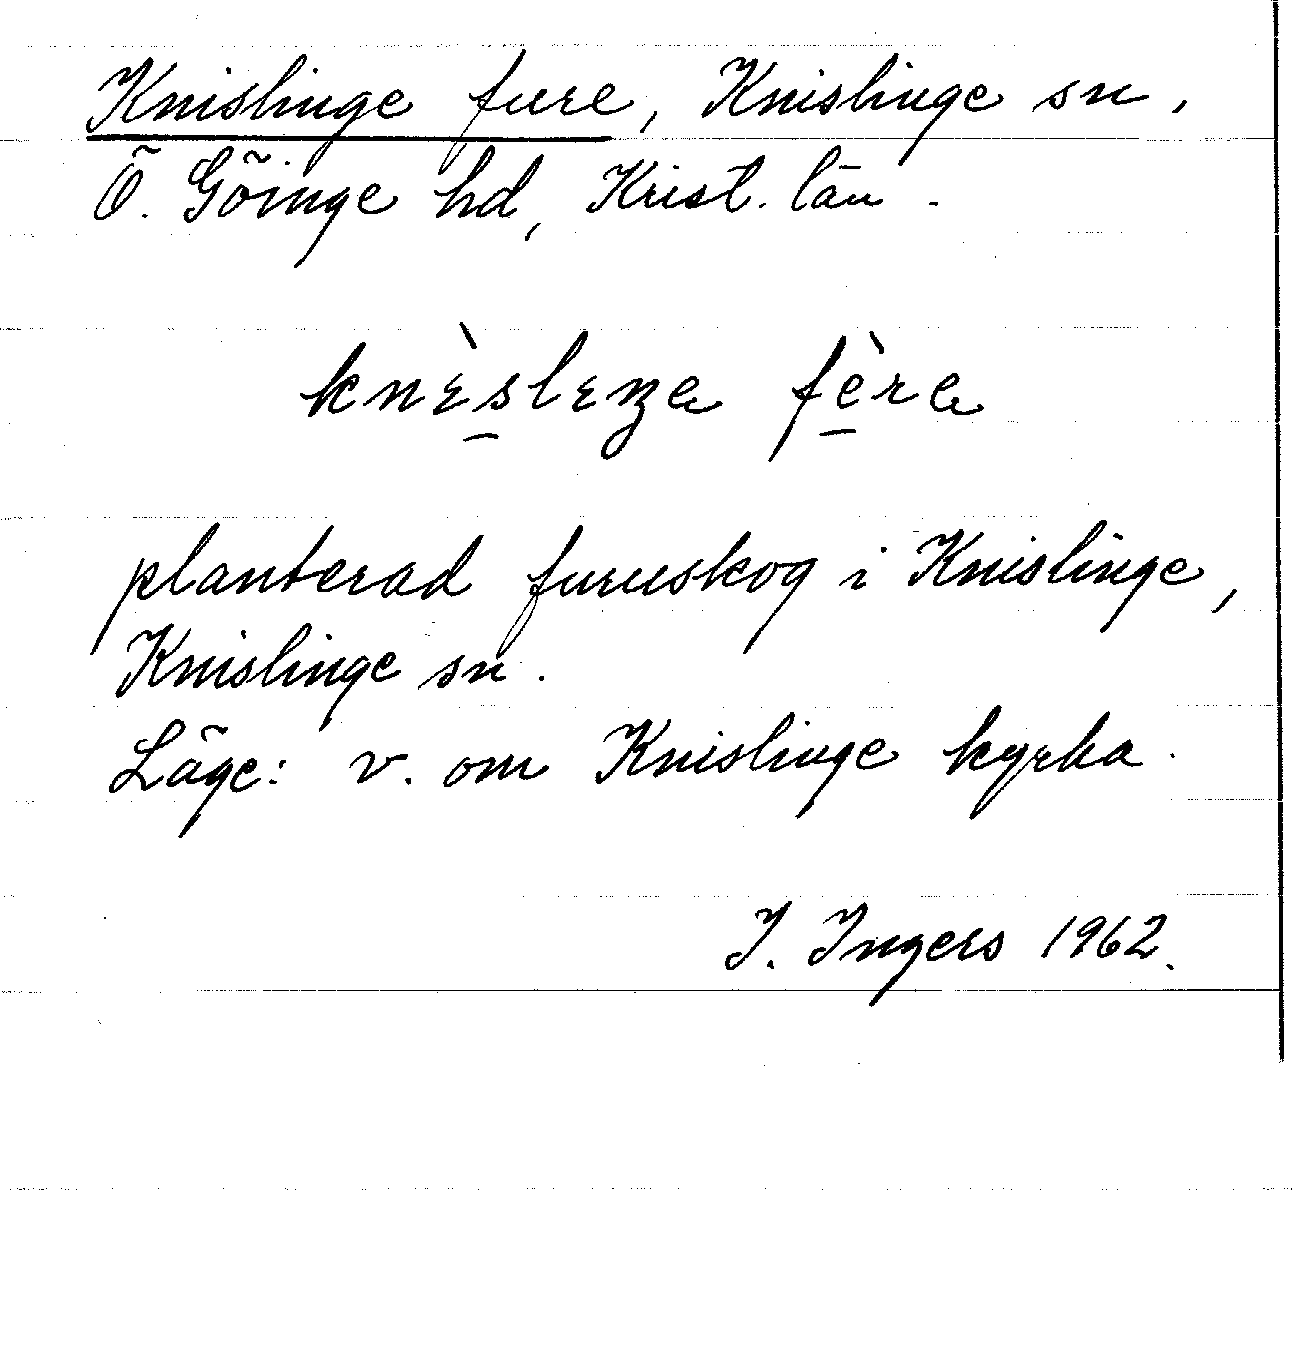 Knislinge fure, Knislinge sn,
Ö. Göinge hd, Krist. län.
knìslıŋa fèra
planterad furuskog i Knislinge,
Knislinge sn.
Läge: v. om Knislinge kyrka.
I. Ingers 1962.